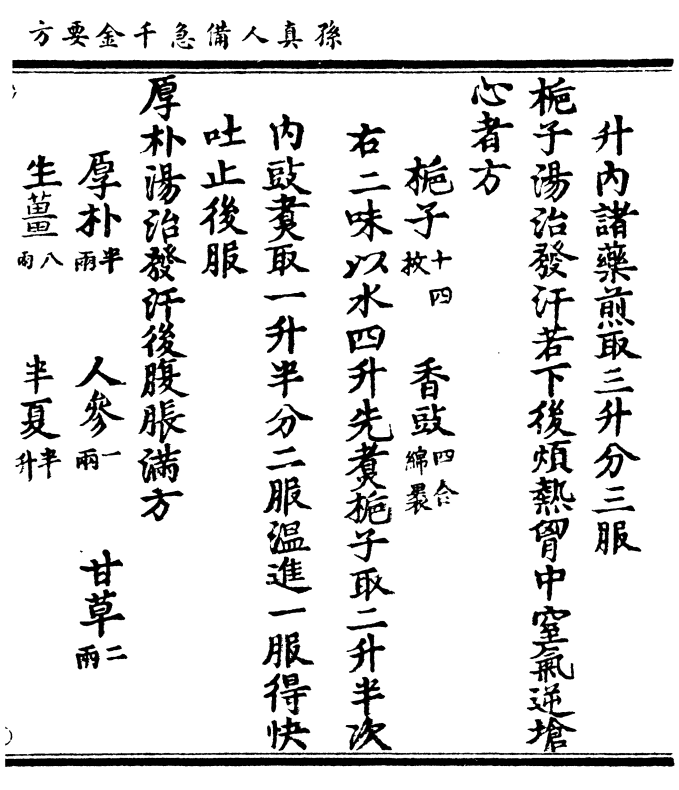 孫真人備急千金要方
升內諸藥煎取三升分三服
梔子湯治發汗若下後煩熱胷中窒氣逆搶
心者方
梔子十四枚 香豉四合綿裹
右二味以水四升先煑梔子取二升半次
內豉煑取一升半分二服溫進一服得快
吐止後服
厚朴湯治發汗後腹脹滿方
厚朴半兩 人參一兩 甘草二兩
生薑八兩 半夏半升